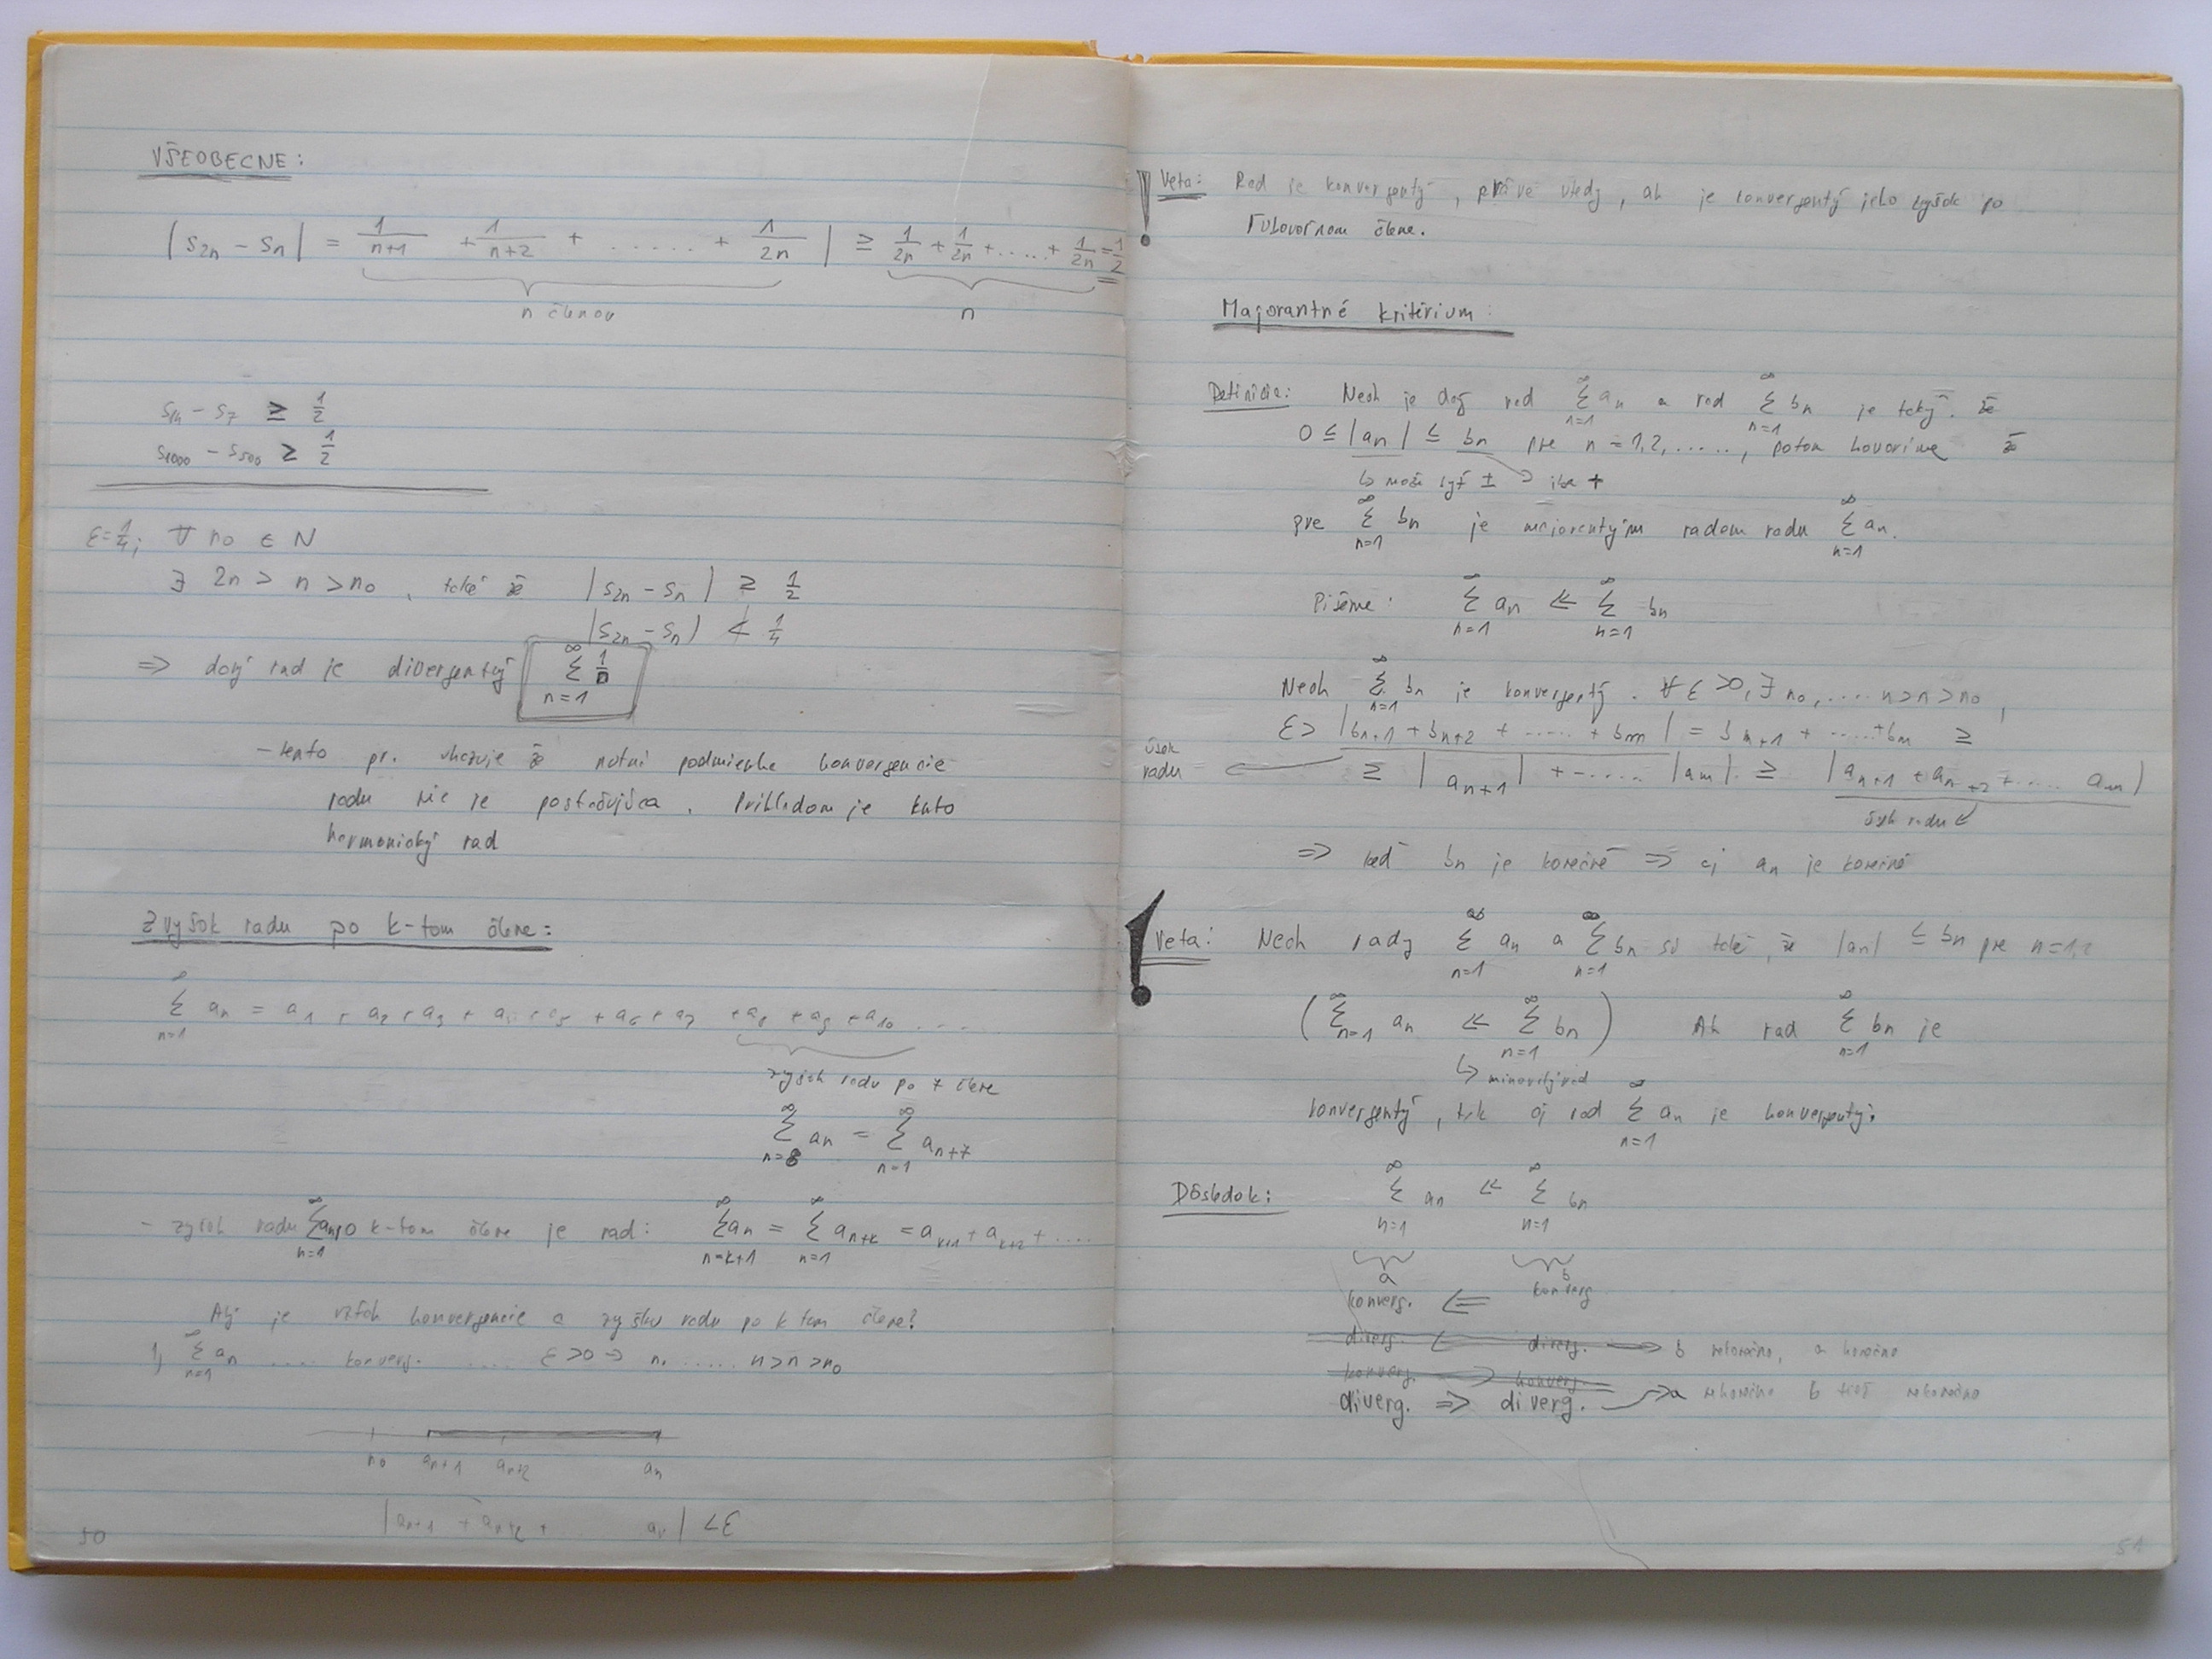 VŠEOBECNE:
|s2n - sn| = 1/n+1 + 1/n+2 + ...... + 1/2n | ≥ 1/2n + 1/2n + ..... + 1/2n = 1/2
n členov n
s14 - s7 ≥ 1/2
s1000 - s500 ≥ 1/2
ε=1/4; ∀ n0 ∈ N
∃ 2n > n > n0, také že |s2n - sn| ≥ 1/2
|s2n - sn| ≮ 1/4
⇒ daný rad je divergentný ∞ Σ n=1 1/n
- tento pr. ukazuje že nutná podmienka konvergencie
radu nie je postačujúca. Príkladom je tento
harmonický rad
Zvyšok radu po k-tom člene:
∞ Σ n=1 an = a1 + a2 + a3 + a4 + a5 + a6 + a7 + a8 + a9 + a10 ....
zvyšok radu po 7 člene
∞ Σ n=8 an = ∞ Σ n=1 an+7
- zvyšok radu ∞ Σ n=1 an po k-tom člene je rad: ∞ Σ n=k+1 an = ∞ Σ n=1 an+k = ak+1 + ak+2 + ....
Aký je vzťah konvergencie a zvyšku radu po k tom člene?
1, ∞ Σ n=1 an .... konverg. .... ε>0 → n. ...... n>n>n0
n0 an+1 an+2 an
|an+1 + an+2 + an| <ε
50
! Veta: Rad je konvergentý, práve vtedy, ak je konvergentý jeho zvyšok po
ľubovoľnom člene.
Majorantné kritérium:
Definícia: Nech je daný rad ∞ Σ n=1 an a rad ∞ Σ n=1 bn je taký, že
0 ≤ |an| ≤ bn pre n = 1,2, ....., potom hovoríme že
↳ može byť ± → iba +
pre ∞ Σ n=1 bn je majorantým radom radu ∞ Σ n=1 an.
Píšeme: ∞ Σ n=1 an ≪ ∞ Σ n=1 bn
Nech ∞ Σ n=1 bn je konvergentý. ∀ ε >0, ∃ n0, .... n>n>n0,
ε> |bn+1 + bn+2 + ..... + bm| = bn+1 + .....+bm ≥
úsek radu ≥ |an+1| + ...... |am| ≥ |an+1 + an+2 + .... am|
úsek radu
⇒ keď bn je konečné ⇒ aj an je konečné
! Veta: Nech rady ∞ Σ n=1 an a ∞ Σ n=1 bn sú také, že |an| ≤ bn pre n=1,2
( ∞ Σ n=1 an ≪ ∞ Σ n=1 bn ) Ak rad ∞ Σ n=1 bn je
konvergentý, tak aj rad ∞ Σ n=1 an je konvergentý.
Dôsledok: ∞ Σ n=1 an ≪ ∞ Σ n=1 bn
a b
konverg. ⇐ konverg
diverg. ⇐ diverg. → b nekonečno, a konečno
konverg. ⇒ konverg.
diverg. ⇒ diverg. → a nekonečno b tiež nekonečno
51